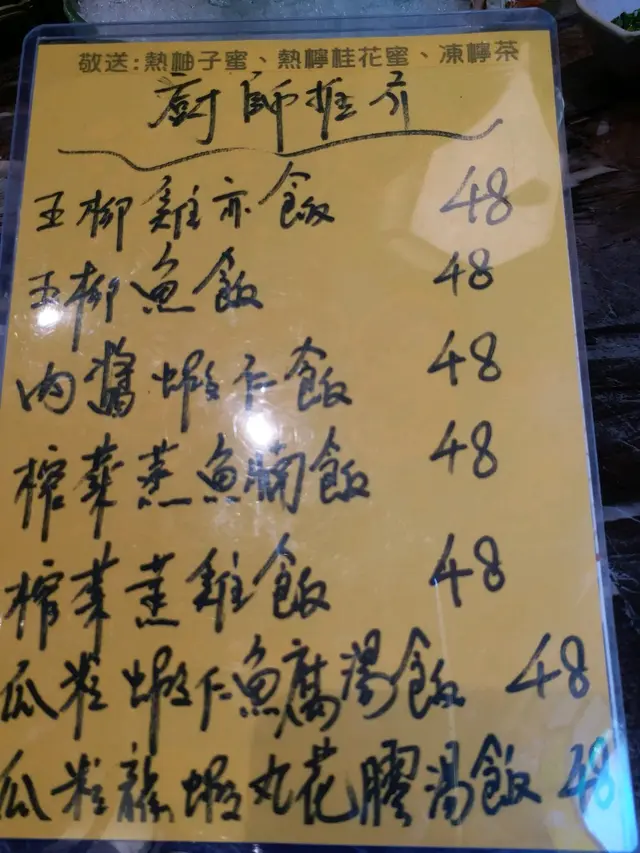 敬送:熱柚子蜜、熱檸桂花蜜、凍檸茶
廚師推介
五柳雞亦飯 48
五柳魚飯 48
肉醬蝦仁飯 48
榨菜蒸魚腩飯 48
榨菜蒸雞飯 48
瓜粒蝦仁魚腐湯飯 48
瓜粒龍蝦丸花膠湯飯 48